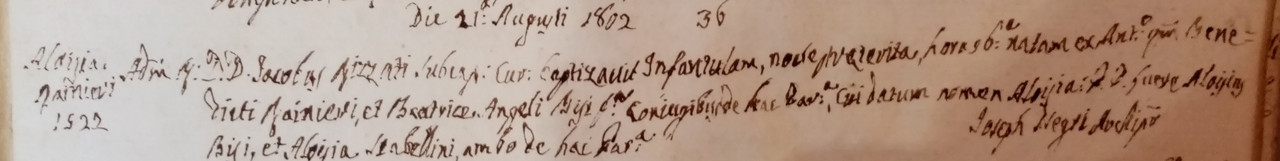 Die 21.ª Augusti 1802 36
Aloisia Adm. R. D. D. Jacobus Rizzati Subcap: Cur: baptizavit Infantulam, nocte praeterita, hora 6:ª natam ex Ant.º qm Bene=
Rainieri dicti Rainieri, et Beatrice Angeli Bisi f.ª Coniugibus de hac Par:ª, Cui datum nomen Aloisia: P. P. fuere Aloisius
1522 Bisi, et Aloisia Stabellini, ambo de hac Par:ª Joseph Negri